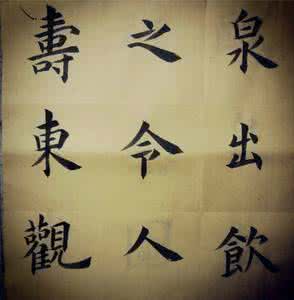 泉出飲
之令人
壽東觀